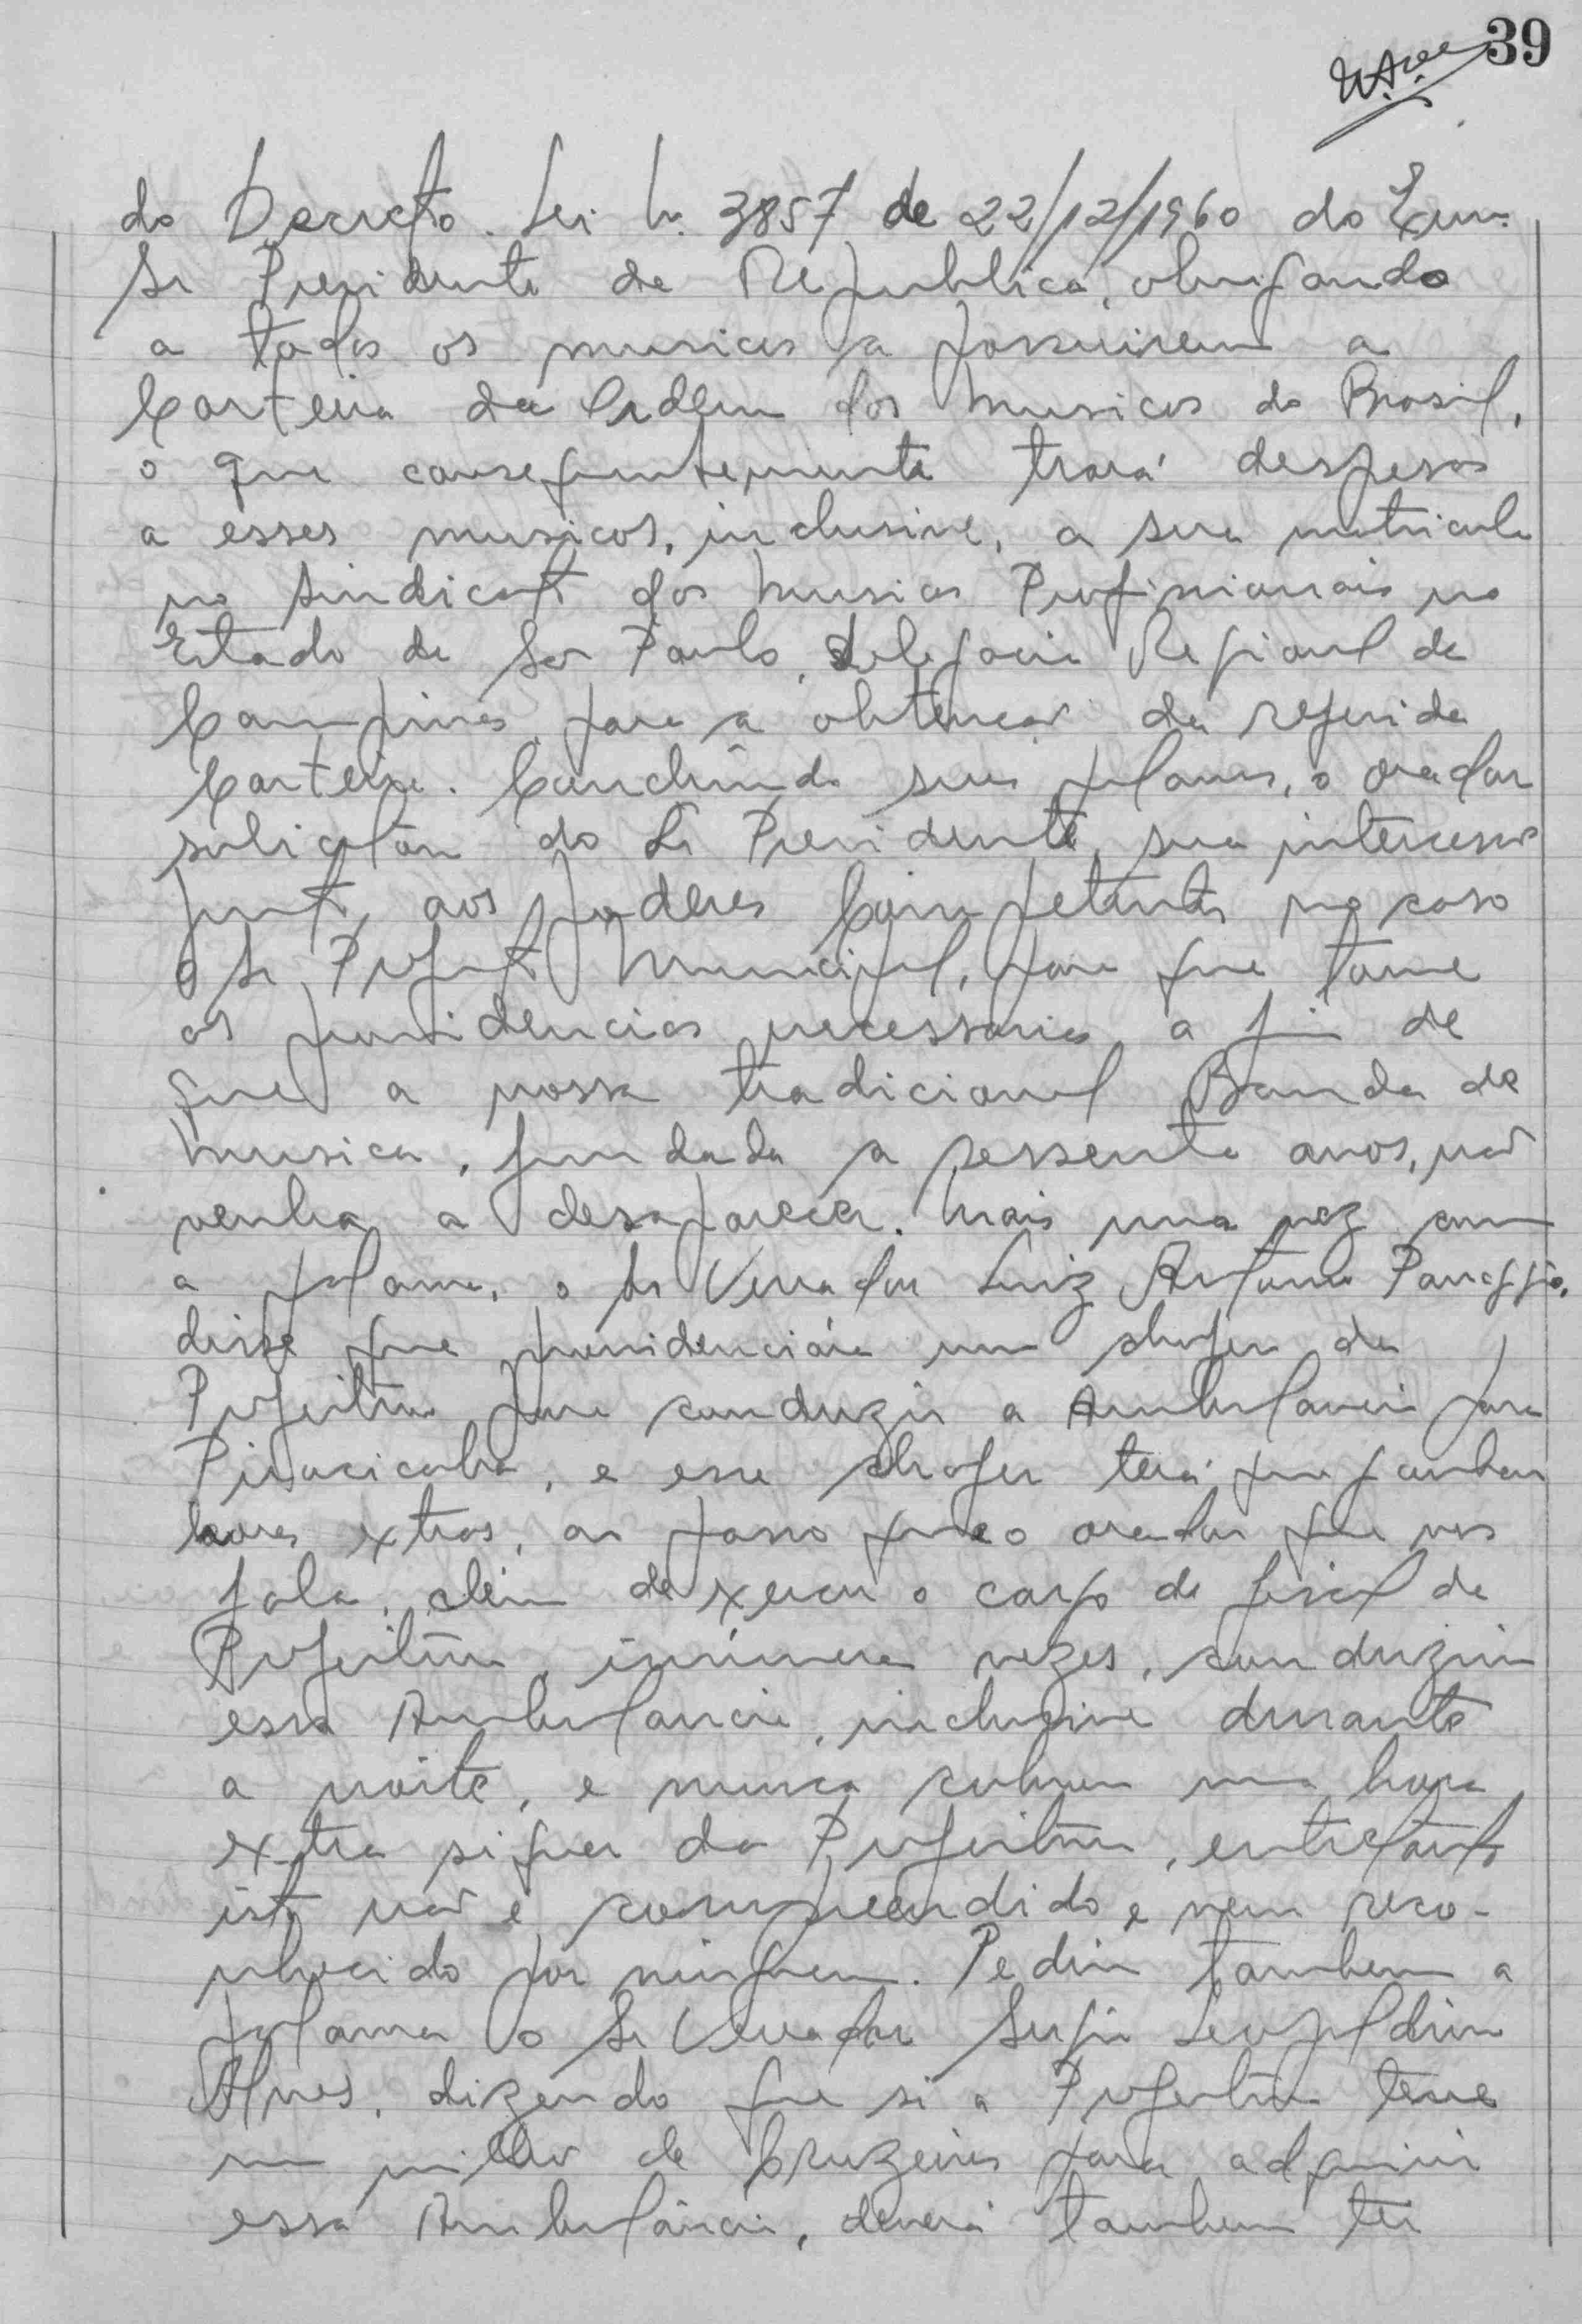 39
do Decreto Lei n. 3857 de 22/12/1960 do Exm.
Sr Presidente da Republica, obrigando
a todos os musicos a possuirem a
Carteira da Ordem dos Musicos do Brasil,
o que consequentemente trará despesas
a esses musicos, inclusive, a sua matricula
no Sindicato dos Musicos Profissionais no
Estado de São Paulo, delegacia Regional de
Campinas, para a obtenção da referida
Carteira. Concluindo sua palavra, o orador
solicitou do Sr Presidente, sua intercessão
junto, aos poderes Competentes no caso
o Sr Prefeito Municipal, para que tome
as providencias necessarias a fim de
que a nossa tradicional Banda de
Musica, fundada a sessenta anos, não
venha a desaparecer. Mais uma vez com
a palavra, o Sr Vereador Luiz Antonio
disse que providenciará um chofer da
Prefeitura para conduzir a Ambulancia para
Piracicaba, e esse chofer terá que ganhar
horas extras, ao passo que o orador que vos
fala, além de exercer o cargo de fiscal da
Prefeitura, inúmeras vezes, conduziu
essa Ambulancia, inclusive durante
a noite, e nunca cobrou uma hora
extra siquer da Prefeitura, entretanto
isto não é compreendido e nem reco-
nhecido por ninguem. Pediu tambem a
palavra o Sr Vereador Sergio Leopoldino
Alves, dizendo que si a Prefeitura teve
um milhão de Cruzeiros para adquirir
essa Ambulância, deverá tambem ter